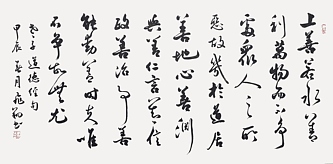 上善若水善
利萬物而不争
處眾人之所
惡故幾於道居
善地心善淵
與善仁言善信
政善治事善
能動善時夫唯
不争故無尤
老子道德經句
甲辰夏月書